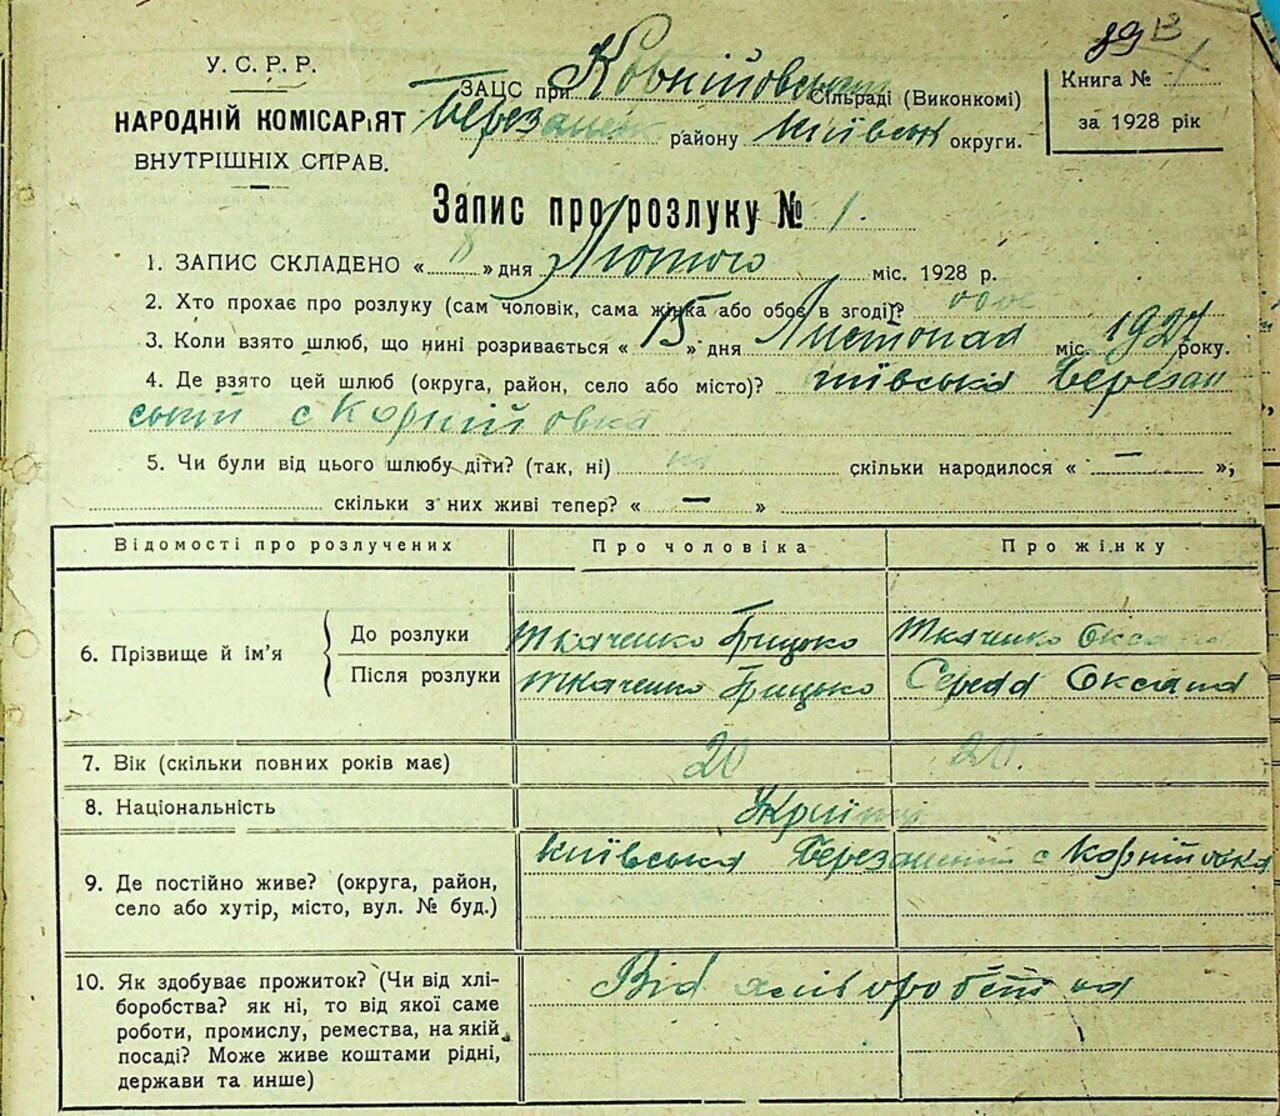 89
У.С.Р.Р.
НАРОДНІЙ КОМІСАРІЯТ
ВНУТРІШНІХ СПРАВ.
ЗАЦС при Сільраді (Виконкомі)
районy Київськ округи.
Книга №
за 1928 рік
Запис про розлуку № 1.
1. ЗАПИС СКЛАДЕНО « 8 » дня Лютого міс. 1928 р.
2. Хто прохає про розлуку (сам чоловік, сама жінка або обоє в згоді)? обоє
3. Коли взято шлюб, що нині розривається « 15 » дня Листопад міс. 1927 року.
4. Де взято цей шлюб (округа, район, село або місто)? Київська Березан
ський с Корнійовка
5. Чи були від цього шлюбу діти? (так, ні) ні скільки народилося « — »,
скільки з них живі тепер? « — »
Відомості про розлучених Про чоловіка Про жінку
6. Прізвище й ім'я
До розлуки Ткаченко Грицько Ткаченко Оксана
Після розлуки Ткаченко Грицько Середа Оксана
7. Вік (скільки повних років має) 20 20.
8. Національність Українці
9. Де постійно живе? (округа, район, село або хутір, місто, вул. № буд.) Київська Березанський с Корнійовка
10. Як здобуває прожиток? (Чи від хлі-
боробства? як ні, то від якої саме
роботи, промислу, ремества, на якій
посаді? Може живе коштами рідні,
держави та инше)
Від хліборобства